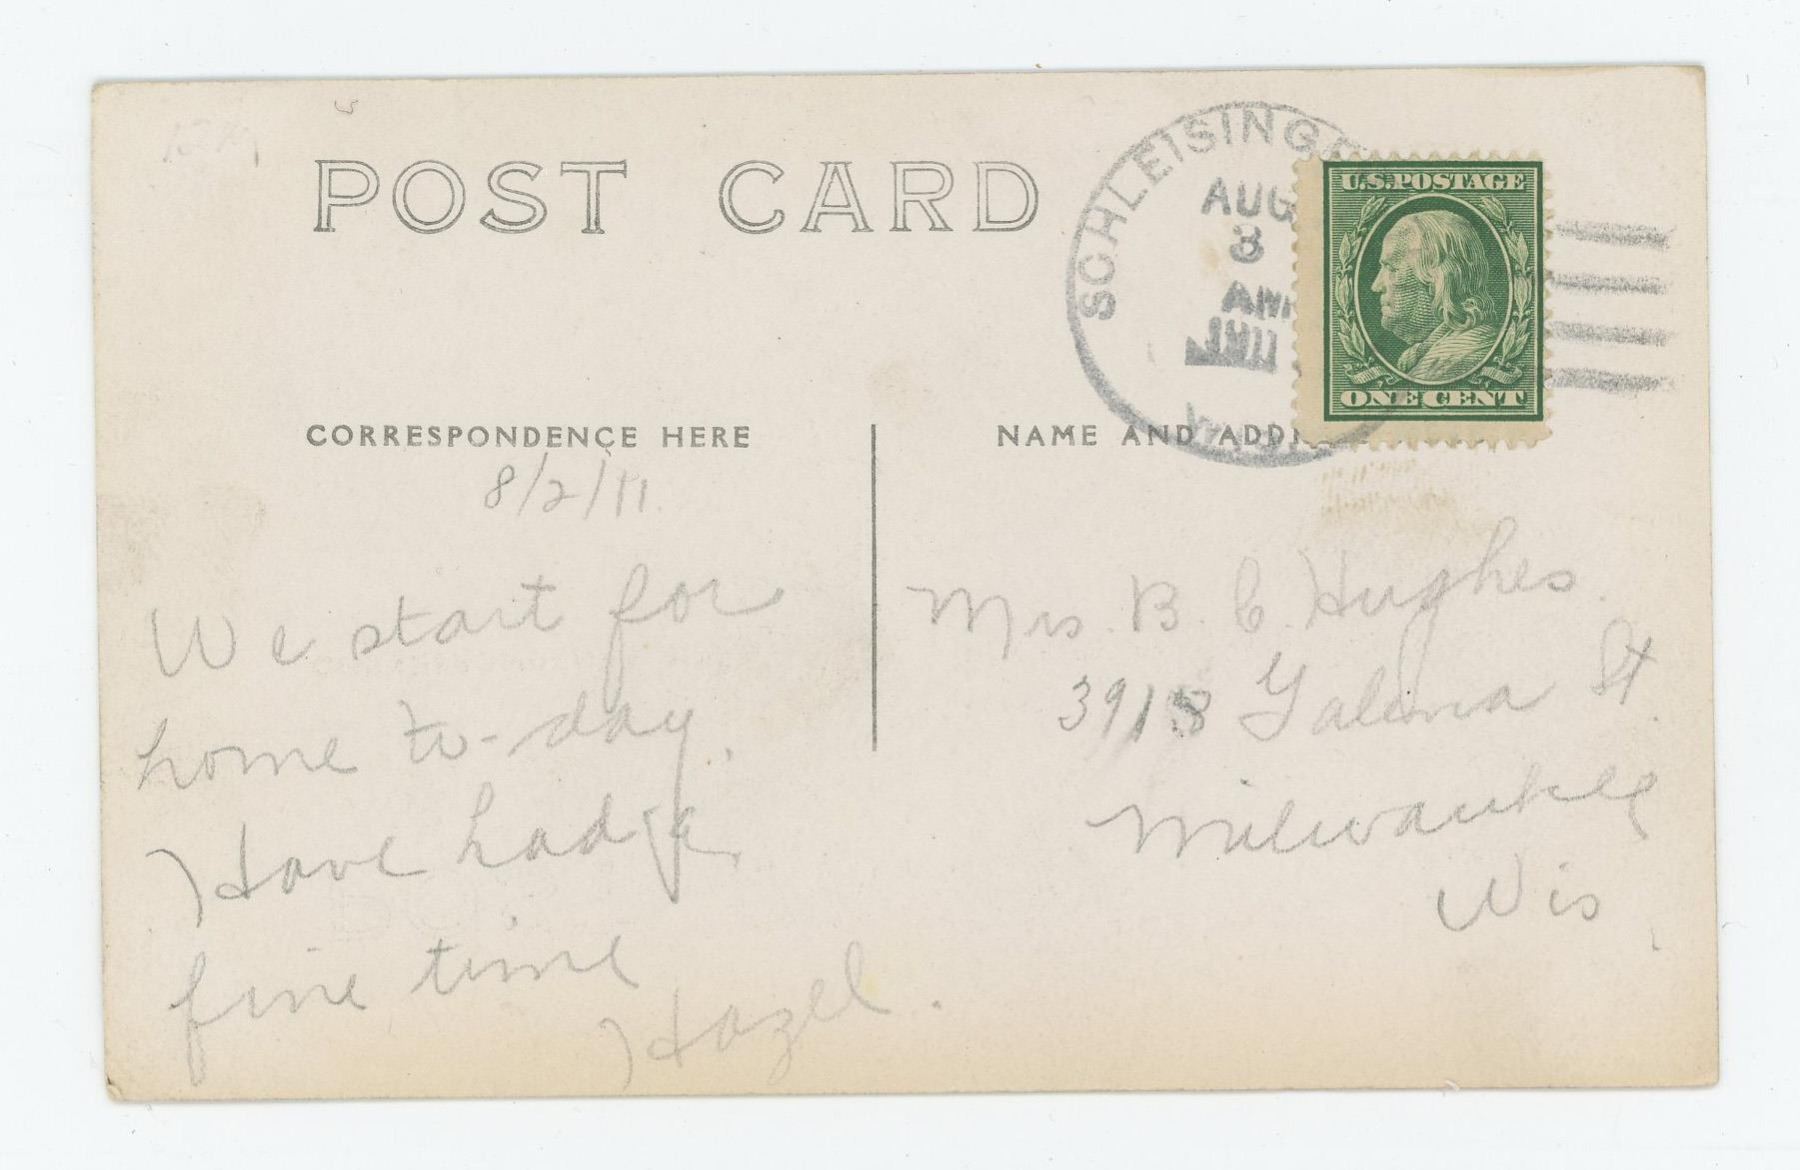 POST CARD
SCHLEISINGE
AUG
8
AM
U.S. POSTAGE
ONE CENT
CORRESPONDENCE HERE
NAME AND ADDRE
8/2/11.
We start for
home to-day.
Have had a
fine time
Hazel.
Mrs. B. C. Hughes.
3918 Galena St.
Milwaukee
Wis.